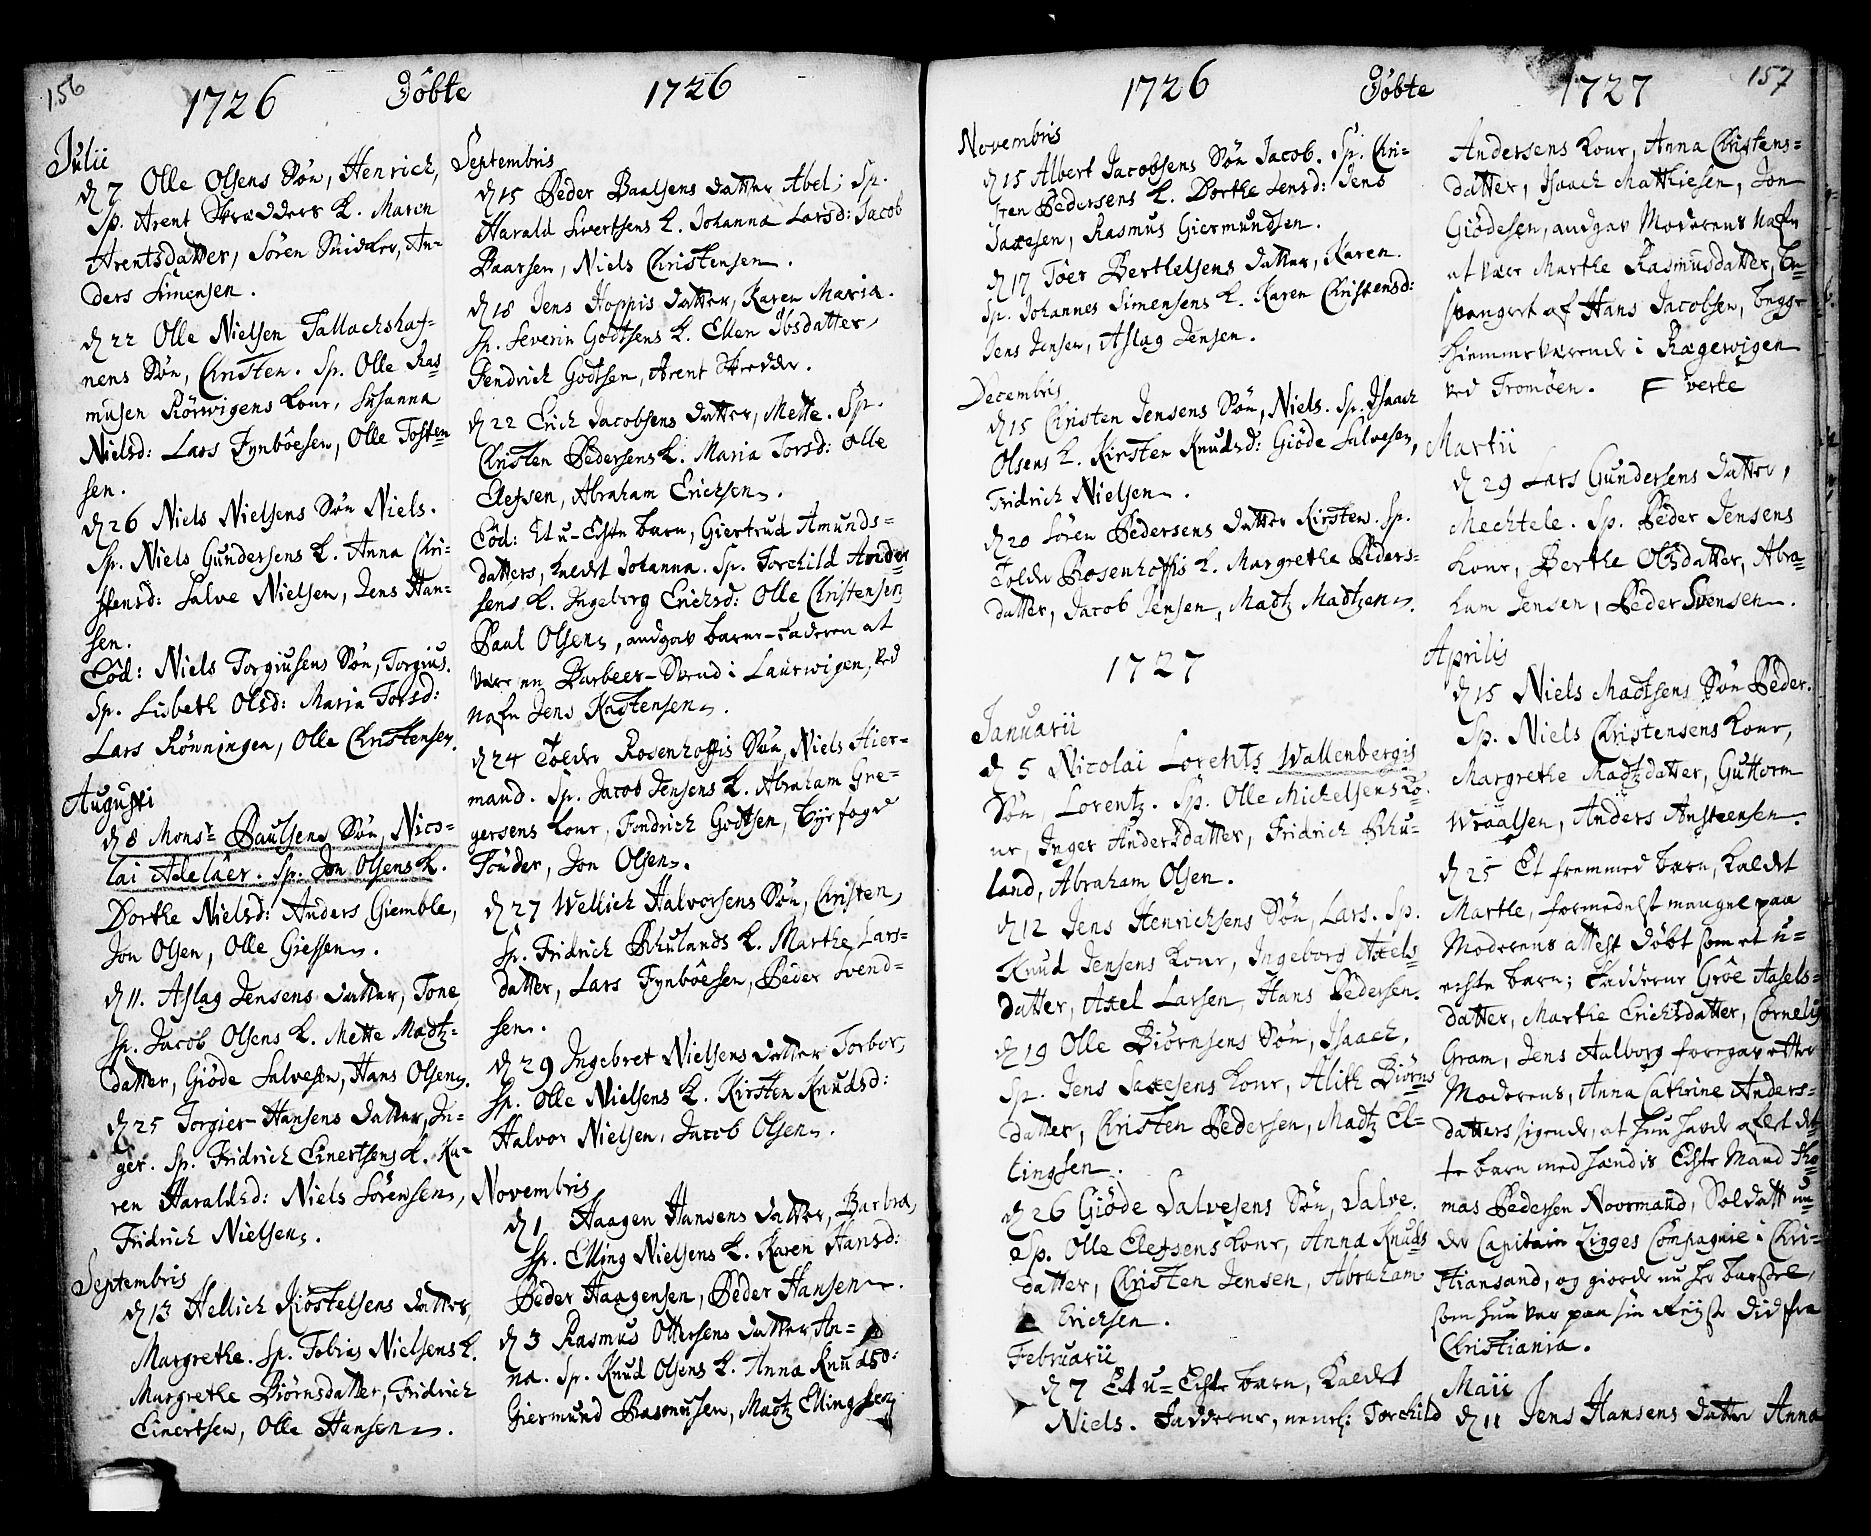 156
1726 Döbte 1726
Julii
d 7 Olle Olsens Sön, Henrich,
Sp. Arent Skrædders K. Maren
Arentsdatter, Sören Snidker, An-
ders Simensen.
d 22 Olle Nielsen Tallachshaf-
nens Sön, Christen. Sp. Olle Ras-
musen Rörwigens Konr, Susanna
Nielsd: Lars Fynböesen, Olle Tosten
sen.
d 26 Niels Nielsens Sön Niels.
Sp. Niels Gundersens K. Anna Chri-
stensd: Salve Nielsen, Jens Han-
sen.
Eôd: Niels Torgiusens Sön, Torgius.
Sp. Lisbeth Olsd: Maria Torsd:
Lars Rönningen, Olle Christensen.
Augusti
d 8 Monsr Paulsens Sön, Nico-
lai Adelaer. Sp. Jon Olsens K.
Dorthe Nielsd: Anders Giemble,
Jon Olsen, Olle Giessen.
d 11. Aslag Jensens datter, Tone
Sp. Jacob Olsens K. Mette Madtz-
datter, Giöde Salvesen, Hans Olsen.
d 25 Torgier Hansens datter, In-
ger. Sp. Fridrich Einertsens K. Ka-
ren Haraldsd: Niels Sörensen,
Fridrich Nielsen.
Septembris
d 13 Hellich Kiöstelsens datter,
Margrethe. Sp. Tobias Nielsens K.
Margrethe Biörnsdatter, Fridrich
Einertsen, Olle Hansen.
Septembris
d 15 Peder Paalsens datter Abel; Sp.
Harald Sivertsens K. Johanna Larsd: Jacob
Paarsen, Niels Christensen.
d 18 Jens Hoppis datter, Karen Maria.
Sp. Severin Godtsens K. Ellen Ibsdatter,
Fendrich Godtsen, Arent Skredder.
d 22 Erich Jacobsens datter, Mette. Sp.
Christen Pedersens K. Maria Torsd: Olle
Elefsen, Abraham Erichsen.
Eôd: Et u-Echte barn, Giertrud Amunds-
datters, kaldt Johanna. Sp. Torchild Ander
sens K. Ingeborg Erichsd: Olle Christensen
Paul Olsen, audgav barne-faderen at
være en Barbeer-Svend i Laurwigen, ved
nafn Jens Kastensen.
d 24 Tolder Rosenhoffis Sön, Niels Hier-
mand. Sp. Jacob Jensens K. Abraham Gre-
gersens konr, Fendrich Godtsen, Byefogd
Tönder, Jon Olsen.
d 27 Wellich Halvorsens Sön, Christen,
Sp. Fridrich Rhulands K. Marthe Lars-
datter, Lars Fynböesen, Peder Svend-
sen.
d 29 Ingebret Nielsens datter Torbor,
Sp. Olle Nielsens K. Kirsten Knudsd:
Halvor Nielsen, Jacob Olsen.
Novembris
d 1 Haagen Hansens datter, Barbra,
Sp. Elling Nielsens K. Karen Hansd:
Peder Haagensen, Peder Hansen.
d 3 Rasmus Ottersens datter An-
na. Sp. Knud Olsens K. Anna Knudsd:
Giermund Rasmusen, Madtz Ellingsen
1726 Döbte 1727 157
Novembris
d 15 Albert Jacobsens Sön Jacob. Sp. Chri-
sten Pedersens K. Dorthe Jensd: Jens
Saxesen, Rasmus Giermundsen.
d 17 Töer Berthelsens datter, Karen.
Sp. Johannes Simensens K. Karen Christensd:
Jens Jensen, Aslag Jensen.
Decembris
d 15 Christen Jensens Sön, Niels. Sp. Isaach
Olsens K. Kirsten Knudsd: Giöde Salvesen,
Fridrich Nielsen.
d 20 Sören Pedersens datter Kirsten. Sp.
Tolder Rosenhoffis K. Margrethe Peders-
datter, Jacob Jensen, Madtz Madtzen.
1727
Januarii
d 5 Nicolai Lorentz Wallenbergis
Sön, Lorentz. Sp. Olle Mickelsens Ko-
ne, Inger Andersdatter, Fridrich Rhu-
land, Abraham Olsen.
d 12 Jens Henrichsens Sön, Lars. Sp.
Knud Jensens konr, Ingeborg Axels-
datter, Axel Larsen, Hans Pedersen.
d 19 Olle Biörnsens Sön, Isaach,
Sp. Jens Saxesens konr, Alith Biörns
datter, Christen Pedersen, Madtz El-
lingsen.
d 26 Giöde Salvesens Sön, Salve.
Sp. Olle Elefsens konr, Anna Knuds
datter, Christen Jensen, Abraham
Erichsen.
Februarii
d 7 Et u-Echte barn, kaldet
Niels. Fadderne, neml: Torchild
Andersens konr, Anna Christens-
datter, Isaach Matthiesen, Jon
Giödesen, audgav Moderens nafn
at være Marthe Rasmusdatter, be-
svangert af Hans Jacobsen, begge
hiemmeværende i Rægewigen
ved Tromöen. verte
Martii
d 29 Lars Gundersens datter,
Mechtele. Sp. Peder Jensens
konr, Berthe Olsdatter, Abra-
ham Jensen, Peder Svensen.
Aprilis
d 15 Niels Madtsens Sön Peder.
Sp. Niels Christensens konr,
Margrethe Madtzdatter, Guttorm
Wraalsen, Anders Ansteensen.
d 25 Et fremmed barn, kaldet
Marthe, formedelst mangel paa
Moderens attest döbt som et u-
echte barn; Fadderne Gröe Axels-
datter, Marthe Erichsdatter, Cornelis
Gram, Jens Aalborg foregav efter
Moderens, Anna Cathrine Anders-
datters sigende, at hun havde aflet det-
te barn med hendis Echte Mand Tho
mas Pedersen Noormand, Soldatt un
der Capitain Zigges Compagnie i Chri-
stiansand, og giorde nu her barsel,
som hun var paa sin Reijse did fra
Christiania.
Maii
d 11 Jens Hansens datter Anna